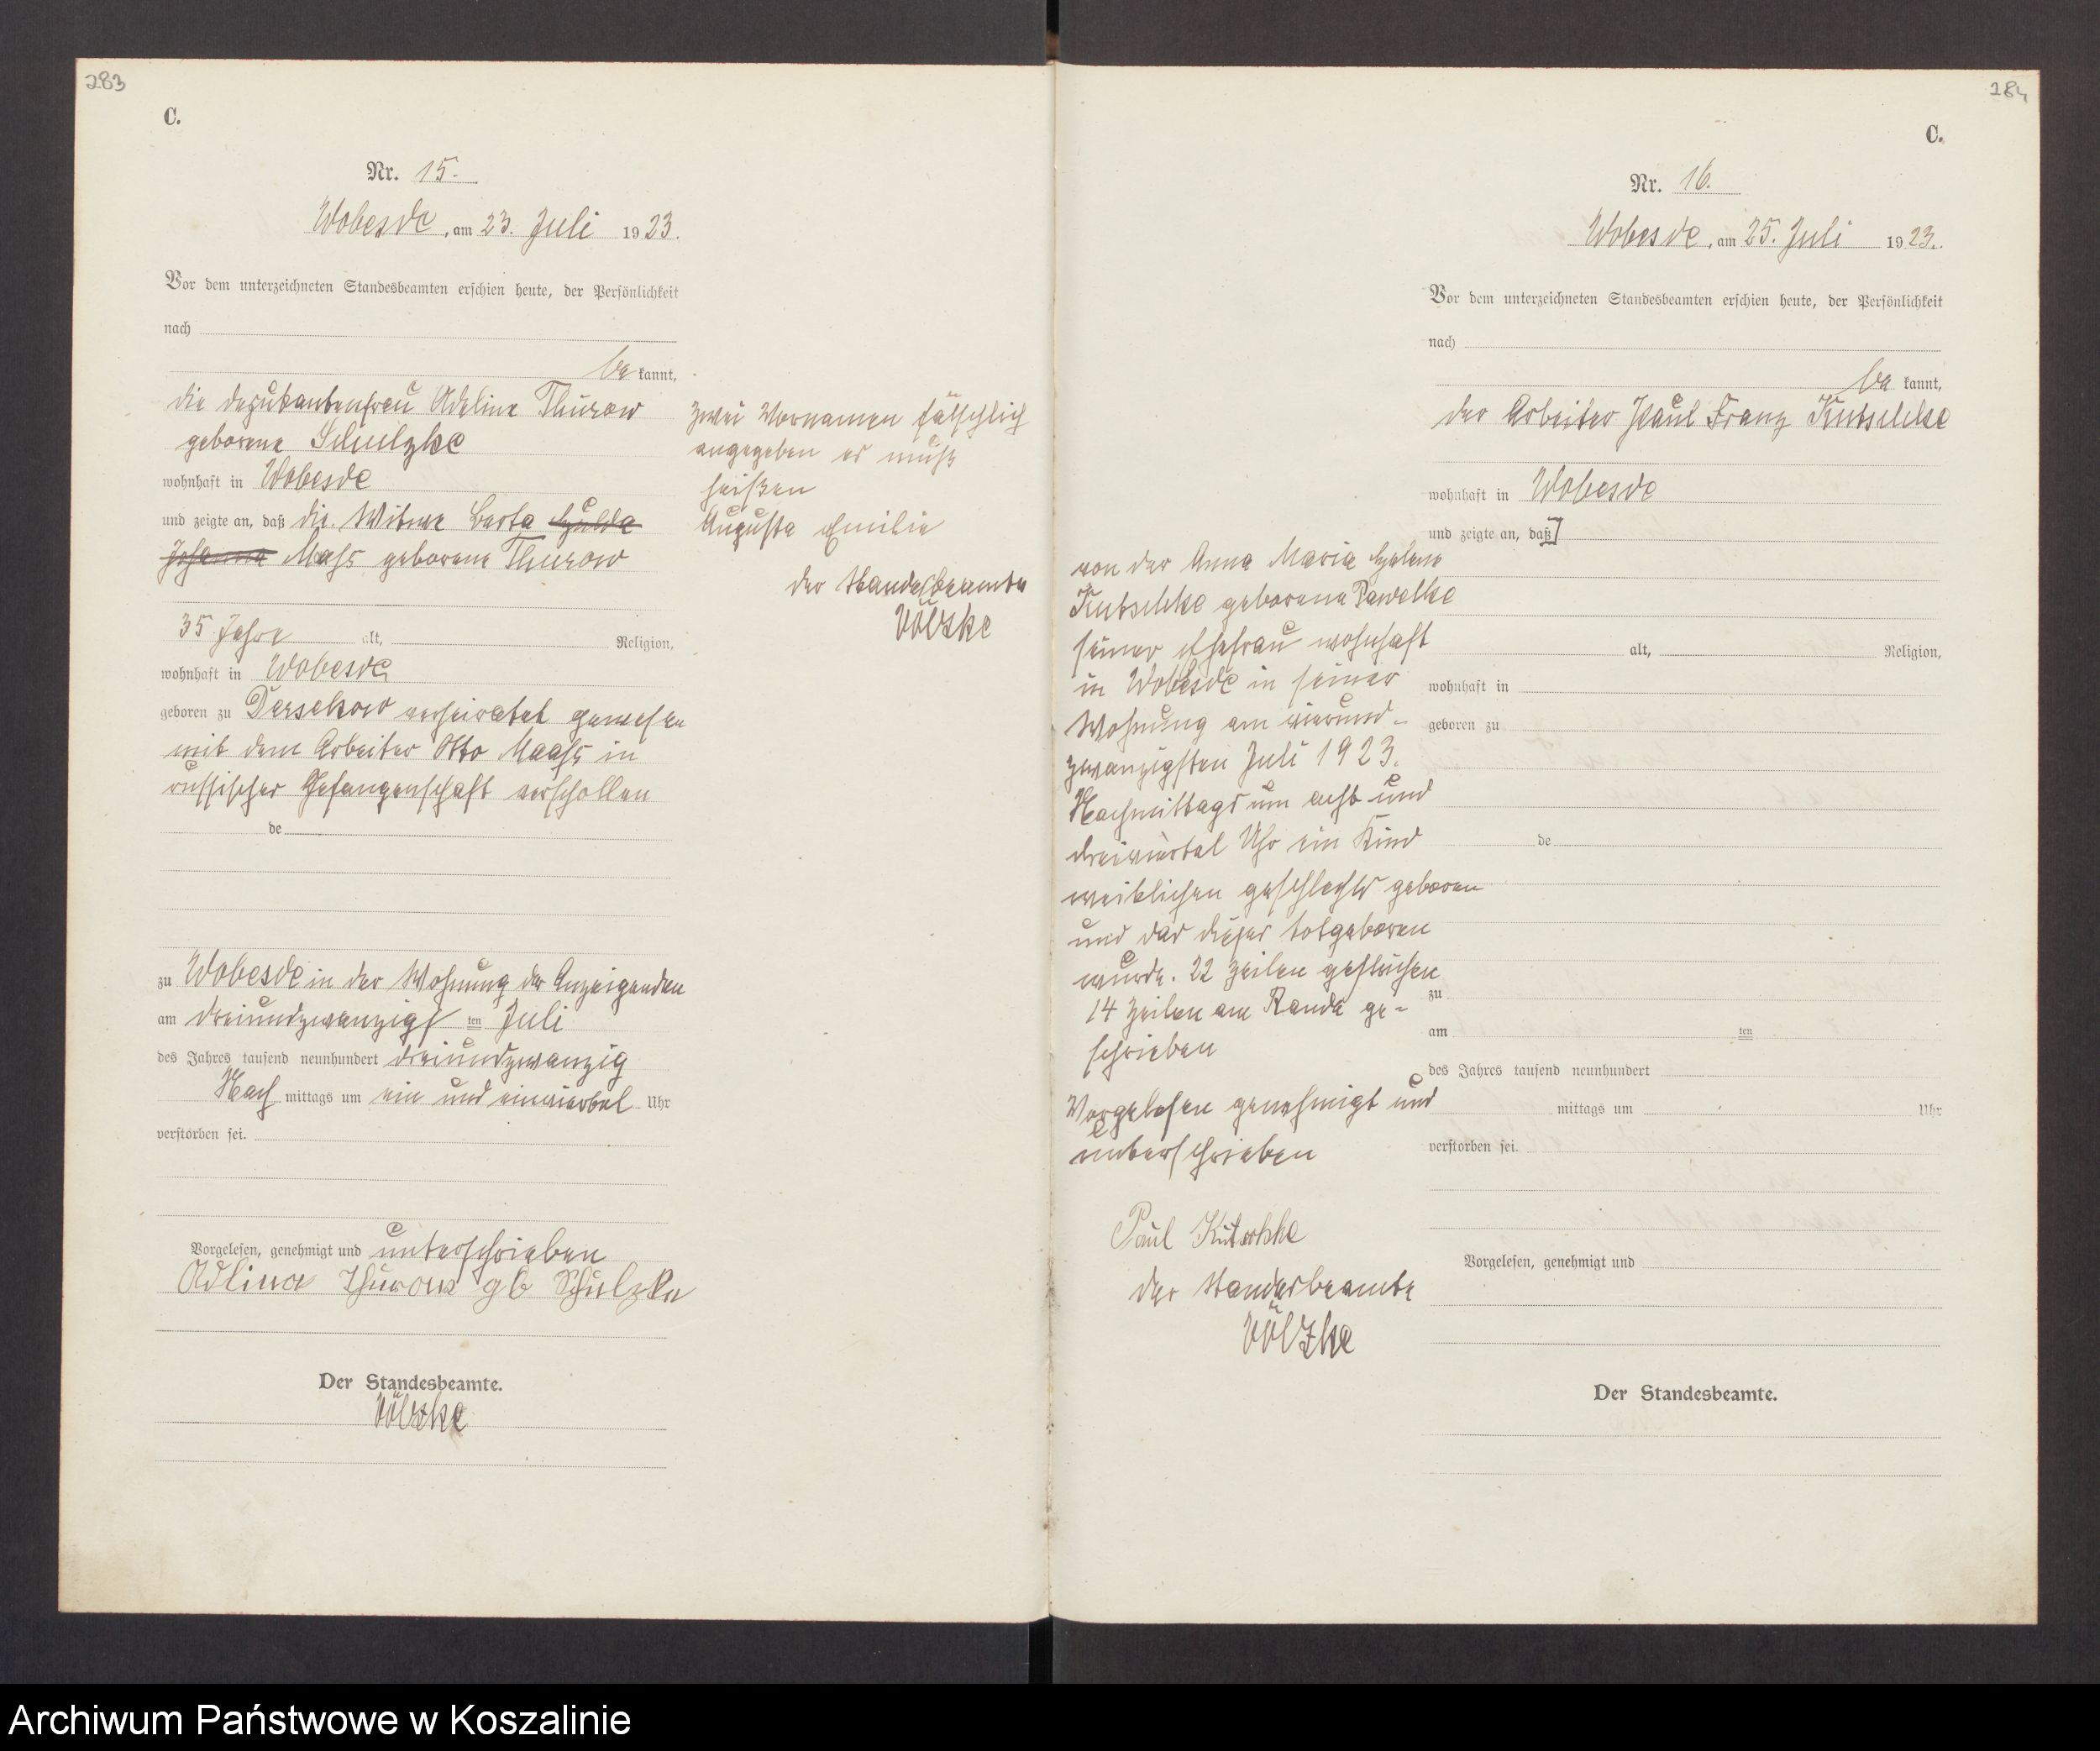 283
C.
Nr. 15.
Wobesde, am 23. Juli 1923.
Vor dem unterzeichneten Standesbeamten erschien heute, der Persönlichkeit
nach
be kannt,
die Deputantenfrau Adeline Thurow
geborene Schulzke
wohnhaft in Wobesde
und zeigte an, daß die Witwe Berta Hulda
Johanna Maß geborene Thurow
35 Jahre alt, Religion,
wohnhaft in Wobesde
geboren zu Dersekow verheiratet gewesen
mit dem Arbeiter Otto Maaß in
russischer Gefangenschaft verschollen
de
zu Wobesde in der Wohnung der Anzeigenden
am dreiundzwanzigsten Juli
des Jahres tausend neunhundert dreiundzwanzig
Nach mittags um ein und einviertel Uhr
verstorben sei.
Vorgelesen, genehmigt und unterschrieben
Adline Thurow gb Schulzke
Der Standesbeamte.
Völzke
zwei Vornamen fälschlich
angegeben es muß
heißen
Auguste Emilie
der Standesbeamte
Völzke
284
C.
Nr. 16.
Wobesde, am 25. Juli 1923.
Vor dem unterzeichneten Standesbeamten erschien heute, der Persönlichkeit
nach
be kannt,
der Arbeiter Paul Franz Kutschke
wohnhaft in Wobesde
und zeigte an, daß
alt, Religion,
wohnhaft in
geboren zu
de
zu
am ten
des Jahres tausend neunhundert
mittags um Uhr
verstorben sei.
Vorgelesen, genehmigt und
Der Standesbeamte.
von der Anna Maria Helene
Kutschke geborene Pawelke
seiner Ehefrau wohnhaft
in Wobesde in seiner
Wohnung am vierund-
zwanzigsten Juli 1923.
Nachmittags um acht und
dreiviertel Uhr ein Kind
weiblichen Geschlechts geboren
und das dieses totgeboren
wurde. 22 Zeilen gestrichen
14 Zeilen am Rande ge-
schrieben
Vorgelesen genehmigt und
unterschrieben
Paul Kutschke
der Standesbeamte
Völzke
Archiwum Państwowe w Koszalinie